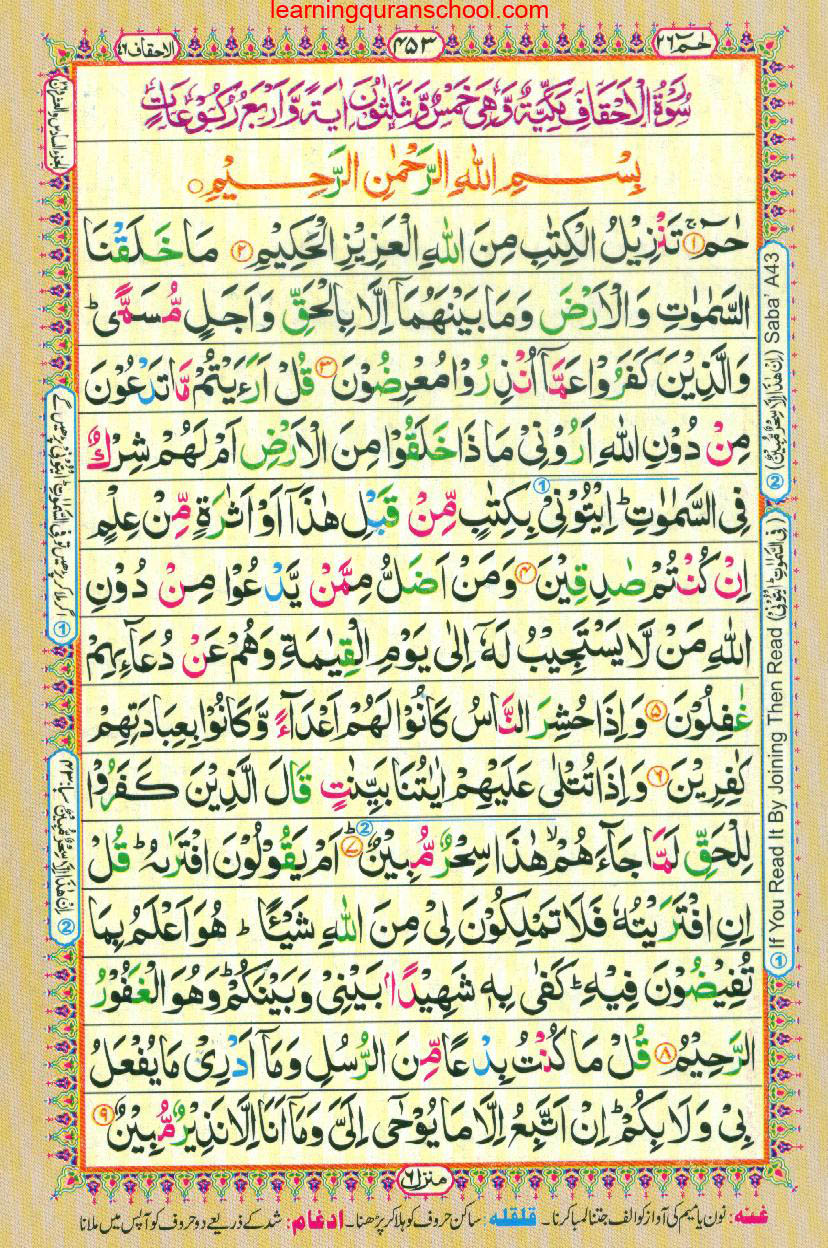 learningquranschool.com
حٰمٓ ٢٦
٤٥٣
الاحقاف ٤٦
سُوْرَةُ الْاَحْقَافِ مَكِّيَّةٌ وَّهِيَ خَمْسٌ وَّثَلٰثُوْنَ اٰيَةً وَّاَرْبَعُ رُكُوْعَاتٍ
بِسْمِ اللهِ الرَّحْمٰنِ الرَّحِيْمِ
حٰمٓ ۚ ١ تَنْزِيْلُ الْكِتٰبِ مِنَ اللهِ الْعَزِيْزِ الْحَكِيْمِ ٢ مَا خَلَقْنَا
السَّمٰوٰتِ وَالْاَرْضَ وَمَا بَيْنَهُمَآ اِلَّا بِالْحَقِّ وَاَجَلٍ مُّسَمًّى ؕ
وَالَّذِيْنَ كَفَرُوْا عَمَّآ اُنْذِرُوْا مُعْرِضُوْنَ ٣ قُلْ اَرَءَيْتُمْ مَّا تَدْعُوْنَ
مِنْ دُوْنِ اللهِ اَرُوْنِيْ مَاذَا خَلَقُوْا مِنَ الْاَرْضِ اَمْ لَهُمْ شِرْكٌ
فِي السَّمٰوٰتِ ؕ اِيْتُوْنِيْ بِكِتٰبٍ مِّنْ قَبْلِ هٰذَآ اَوْ اَثٰرَةٍ مِّنْ عِلْمٍ
اِنْ كُنْتُمْ صٰدِقِيْنَ ٤ وَمَنْ اَضَلُّ مِمَّنْ يَّدْعُوْا مِنْ دُوْنِ
اللهِ مَنْ لَّا يَسْتَجِيْبُ لَهٗٓ اِلٰى يَوْمِ الْقِيٰمَةِ وَهُمْ عَنْ دُعَآئِهِمْ
غٰفِلُوْنَ ٥ وَاِذَا حُشِرَ النَّاسُ كَانُوْا لَهُمْ اَعْدَآءً وَّكَانُوْا بِعِبَادَتِهِمْ
كٰفِرِيْنَ ٦ وَاِذَا تُتْلٰى عَلَيْهِمْ اٰيٰتُنَا بَيِّنٰتٍ قَالَ الَّذِيْنَ كَفَرُوْا
لِلْحَقِّ لَمَّا جَآءَهُمْ ۙ هٰذَا سِحْرٌ مُّبِيْنٌ ؕ ٧ اَمْ يَقُوْلُوْنَ افْتَرٰىهُ ؕ قُلْ
اِنِ افْتَرَيْتُهٗ فَلَا تَمْلِكُوْنَ لِيْ مِنَ اللهِ شَيْـًٔا ؕ هُوَ اَعْلَمُ بِمَا
تُفِيْضُوْنَ فِيْهِ ؕ كَفٰى بِهٖ شَهِيْدًۢا بَيْنِيْ وَبَيْنَكُمْ ؕ وَهُوَ الْغَفُوْرُ
الرَّحِيْمُ ٨ قُلْ مَا كُنْتُ بِدْعًا مِّنَ الرُّسُلِ وَمَآ اَدْرِيْ مَا يُفْعَلُ
بِيْ وَلَا بِكُمْ ؕ اِنْ اَتَّبِعُ اِلَّا مَا يُوْحٰٓى اِلَيَّ وَمَآ اَنَا اِلَّا نَذِيْرٌ مُّبِيْنٌ ٩
منزل ٦
① If You Read It By Joining Then Read (فِي السَّمٰوٰتِ ايْتُوْنِيْ)
② (اِنْ هٰذَا اِلَّا سِحْرٌ مُّبِيْنٌ) Saba' A43
② اِنْ هٰذَا اِلَّا سِحْرٌ مُّبِيْنٌ سبا ٤٣
غنه: نون یا میم کی آواز کو الف جتنا لمبا کرنا۔ قلقله: ساکن حروف کو ہلا کر پڑھنا۔ ادغام: شد کے ذریعے دو حروف کو آپس میں ملانا